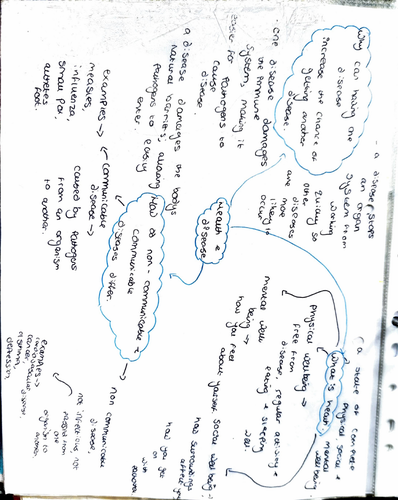 Health &
disease
Why can having one
disease
increase the chance of
getting another
disease.
- one disease
damages
the immune
system, making it
easier for pathogens to
cause
disease.
a disease damages the body's
natural barriers, allowing
pathogens to easily
enter.
- a disease stops
an organ
system from
working
so
other
diseases
are more
likely to
occur
How do non-communicable &
communicable
diseases differ.
communicable
disease →
caused by pathogens
from an organism
to another.
examples →
measles,
influenza
small pox,
athletes
foot.
non communicable
disease.
no infectious, not
passed from one
organism to
another.
examples →
cardiovascular disease,
cancer,
asthma,
depression
What is health.
(a state of complete
physical social &
mental
wellbeing
physical wellbeing →
free from
disease, regular activity &
eating & sleeping
well.
mental well
being →
how you feel
about yourself
social wellbeing:
how surroundings
affect you
how you get